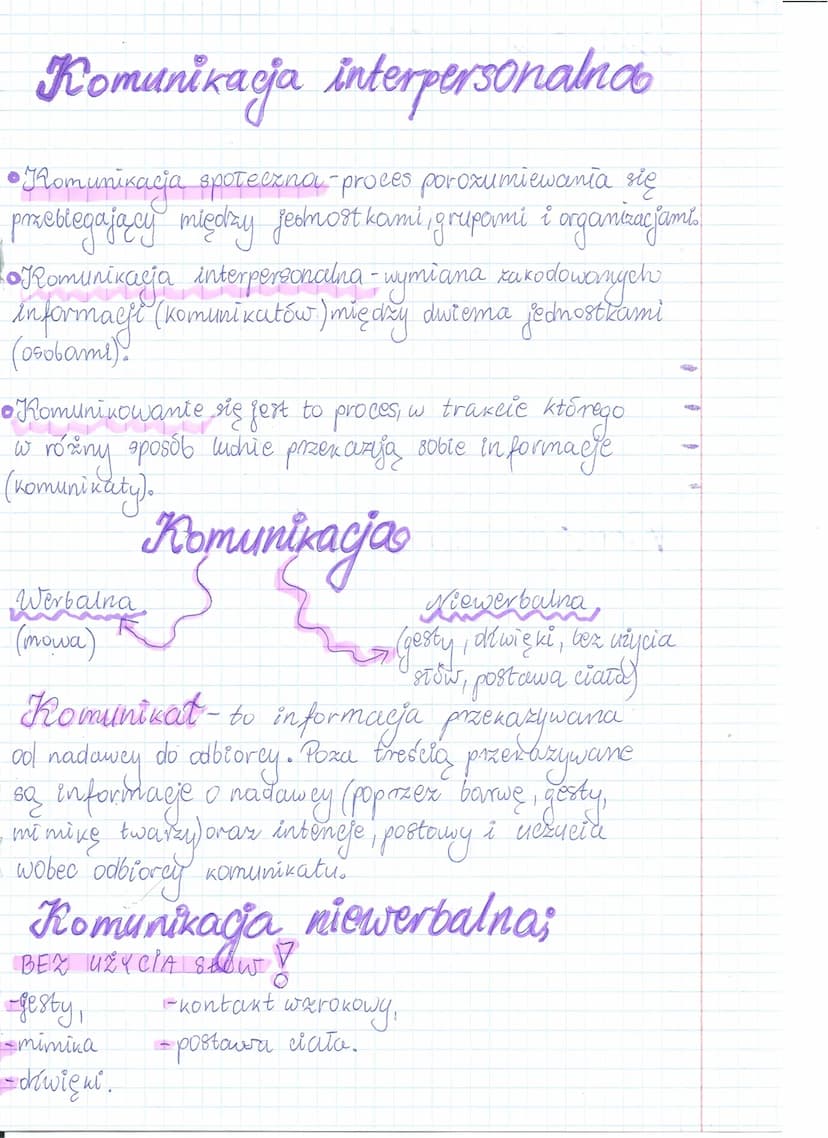 Komunikacja interpersonalna
•Komunikacja społeczna-proces porozumiewania się
przebiegający między jednostkami, grupami i organizacjami.
•Komunikacja interpersonalna-wymiana zakodowanych
informacji (komunikatów) między dwiema jednostkami
(osobami).
•Komunikowanie się jest to proces, w trakcie którego
w różny sposób ludzie przekazują sobie informacje
(komunikaty).
Komunikacja
Werbalna
(mowa)
Niewerbalna
(gesty, dźwięki, bez użycia
słów, postawa ciała)
Komunikat-to informacja przekazywana
od nadawcy do odbiorcy. Poza treścią przekazywane
są informacje o nadawcy (poprzez barwę, gesty,
mimikę twarzy) oraz intencje, postawy i uczucia
wobec odbiorcy komunikatu.
Komunikacja niewerbalna;
BEZ UŻYCIA SŁÓW!
-gesty, -kontakt wzrokowy,
-mimika -postawa ciała.
-dźwięki.